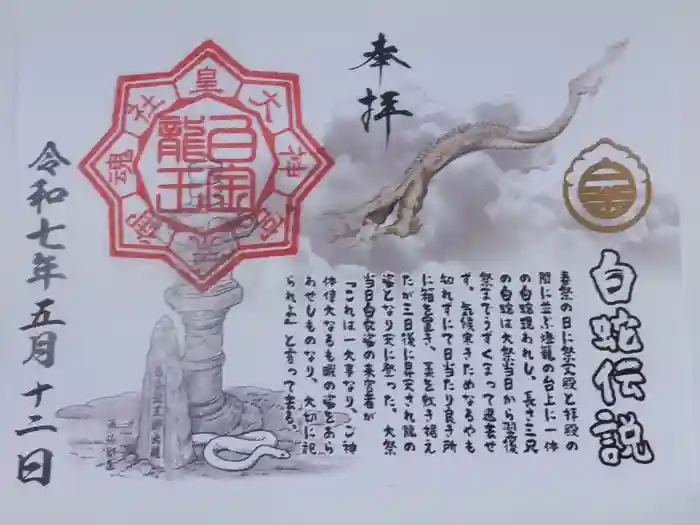 奉拝
白蛇伝説
春祭の日に祭文殿と拝殿の
間に並ぶ燈籠の台上に一体
の白蛇現われし、長さ三尺
の白蛇は大祭当日から翌後
祭までうずくまって退去せ
ず。気候寒きためなるやも
知れずにて日当たり良き所
に箱を置き、藁を敷き据え
たが三日後に昇天され龍の
姿となり天に登った。大祭
当日白衣姿の来宮者が
「これは一大事なり、ご神
体偉大なるも暇の姿をあら
わせしものなり、大切に祀
られよ」と言って去る。
令和七年五月十二日
白宝龍王
大神皇社魂